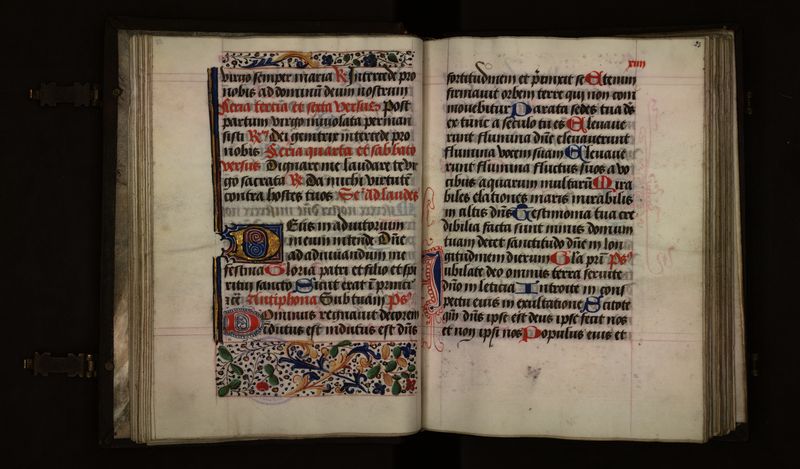 virgo semper maria R Intercede pro
nobis ad dominū deum nostrum
Feria tercia et sexta versus Post
partum virgo inviolata perman
sisti R Dei genitrix intercede pro
nobis Feria quarta et sabbato
versus Dignare me laudare te vir
go sacrata R Da michi virtutē
contra hostes tuos Ad laudes
Deus in adiutorium
meum intende Dñe
ad adiuvandum me
festina Gloria patri et filio et spi
ritui sancto Sicut erat ī princi
Antiphona Sub tuam Ps
Dominus regnavit decorem
indutus est indutus est dñs
xiiii
fortitudinem et p̄cinxit se Etenim
firmavit orbem terre qui non com
movebitur Parata sedes tua ds
ex tunc a seculo tu es Elevave
runt flumina dñe elevaverunt
flumina vocem suam Elevave
runt flumina fluctus suos a vo
cibus aquarum multarū Mira
biles elationes maris mirabilis
in altis dñs Testimonia tua cre
dibilia facta sunt nimis domum
tuam decet sanctitudo dñe in lon
gitudinem dierum Gla pri Ps
Iubilate deo omnis terra servite
dño in leticia Introite in cons
pectu eius in exultatione Scitote
qm̄ dñs ipse est deus ipse fecit nos
et non ipsi nos Populus eius et